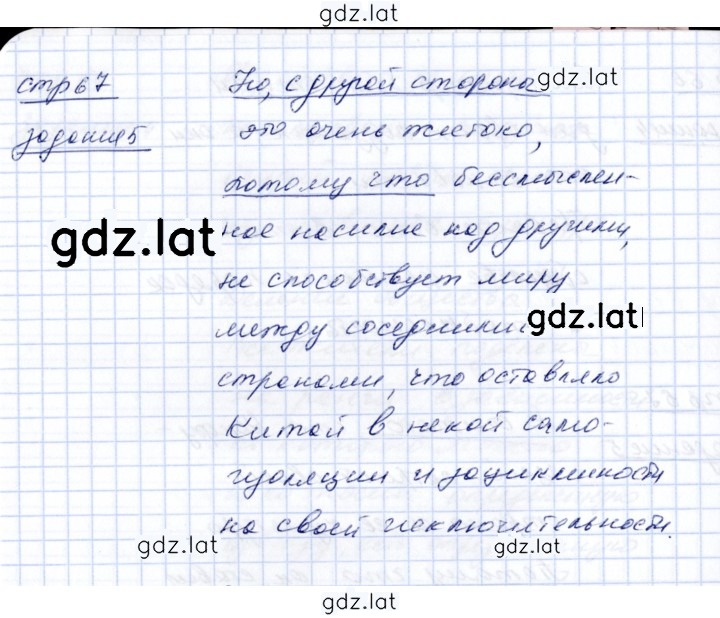 gdz.lat
стр 67
задание 5
Но, с другой стороны
gdz.lat
это очень жестоко,
потому что бессмыслен-
gdz.lat
ное насилие над другими,
не способствует миру
между соседними
gdz.lat
странами, что оставляло
Китай в некой само-
изоляции и зацикленности
на своей исключительности.
gdz.lat
gdz.lat
gdz.lat